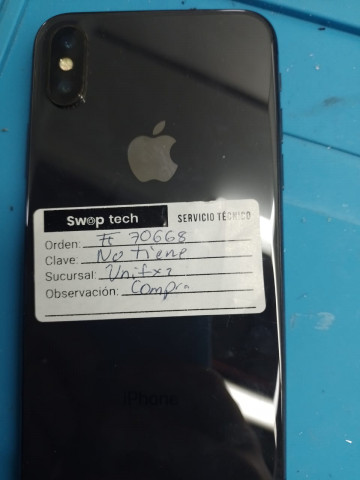 Sw@p tech SERVICIO TÉCNICO
Orden: # 70668
Clave: No tiene
Sucursal: Unifx2
Observación: Compra
iPhone